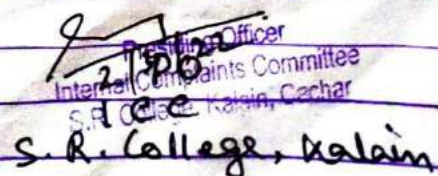 Presiding Officer
Internal Complaints Committee
S.R. College, Kalain, Cachar
ICC
S. R. College, Kalain